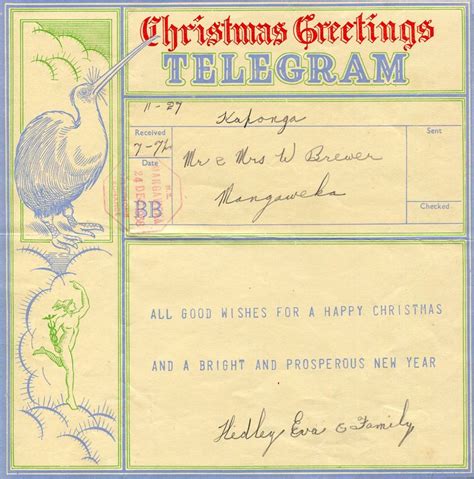 Christmas Greetings
TELEGRAM
11-27
Kaponga
Received
Sent
Mr & Mrs W Brewer
Date
Mangaweka
24 DE
BB
Checked
ALL GOOD WISHES FOR A HAPPY CHRISTMAS
AND A BRIGHT AND PROSPEROUS NEW YEAR
Hedley Eva & Family